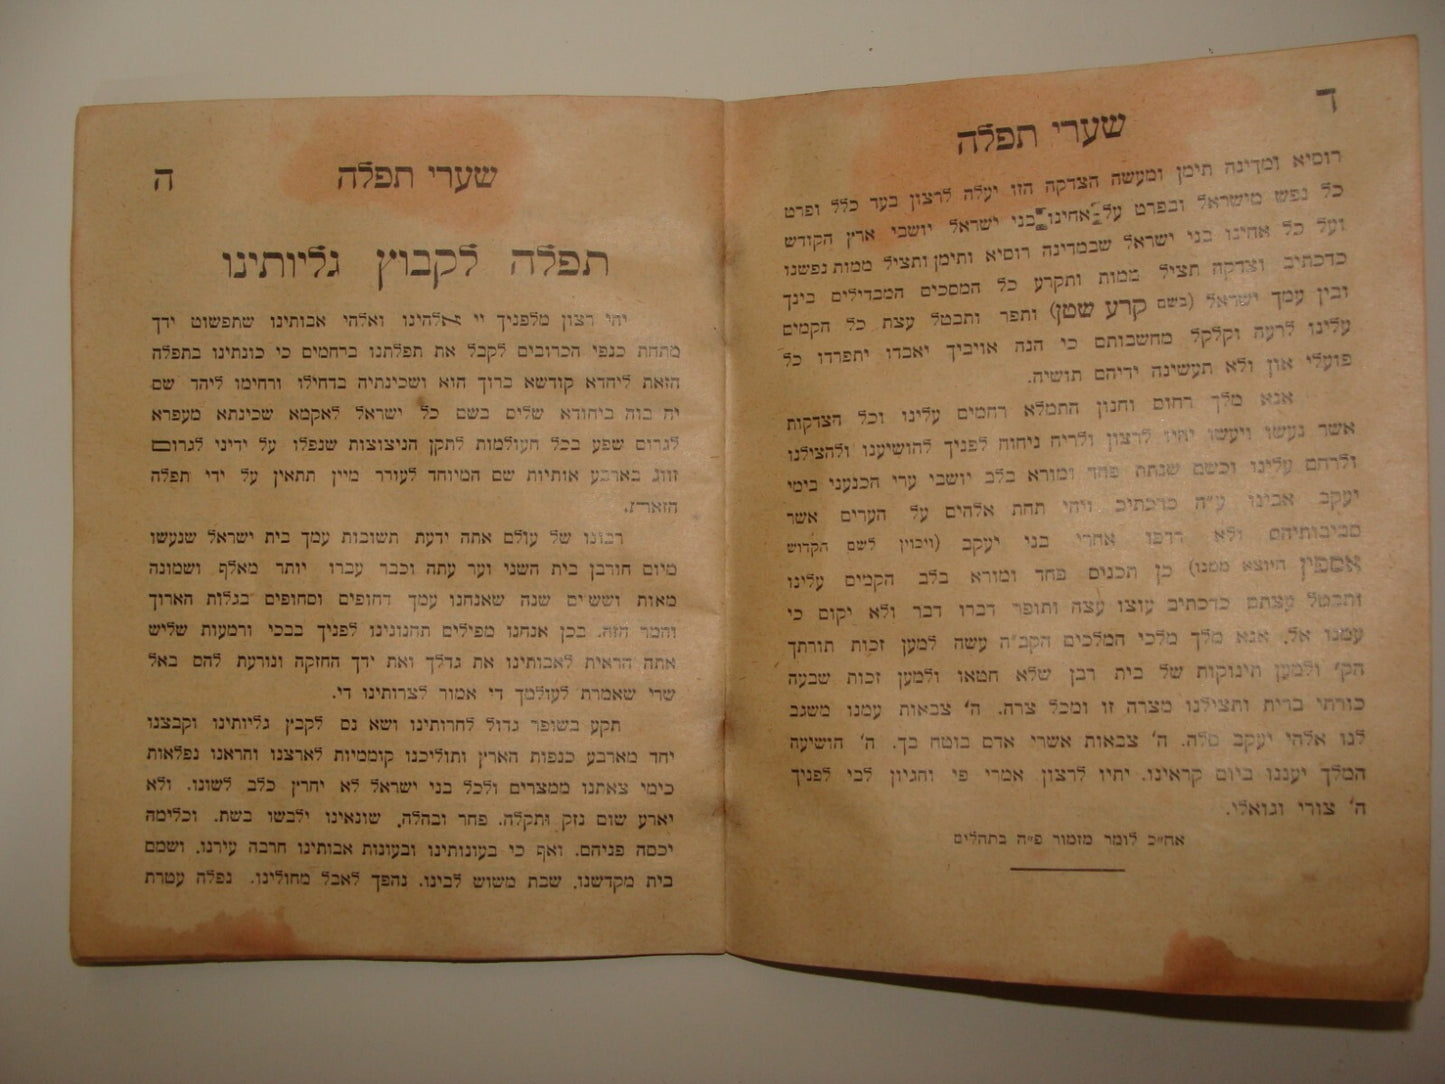 ד
שערי תפלה
רוסיא ומדינה תימן ומעשה הצדקה הזו יעלה לרצון בעד כלל ופרט
כל נפש מישראל ובפרט על אחינו בני ישראל יושבי ארץ הקודש
ועל כל אחינו בני ישראל שבמדינה רוסיא ותימן ותציל ממות נפשנו
כדכתיב וצדקה תציל ממות ותקרע כל המסכים המבדילים בינך
ובין עמך ישראל (בשם קרע שטן) ותפר ותבטל עצת כל הקמים
עלינו לרעה וקלקל מחשבותם כי הנה אויביך יאבדו יתפרדו כל
פועלי און ולא תעשינה ידיהם תושיה.
אנא מלך רחום וחנון התמלא רחמים עלינו וכל הצדקות
אשר נעשו ויעשו יהיו לרצון ולריח ניחוח לפניך להושיענו ולהצילנו
ולרחם עלינו וכשם שנתת פחד ומורא בלב יושבי ערי הכנעני בימי
יעקב אבינו ע״ה כדכתיב ויהי תחת אלהים על הערים אשר
סביבותיהם ולא רדפו אחרי בני יעקב (ויכוין לשם הקדוש
אספין היוצא ממנו) כן תכנים פחד ומורא בלב הקמים עלינו
ותבטל עצתם כדכתיב עוצו עצה ותופר דברו דבר ולא יקום כי
עמנו אל. אנא מלך מלכי המלכים הקב״ה עשה למען זכות תורתך
הק׳ ולמען תינוקות של בית רבן שלא חטאו ולמען זכות שבעה
כורתי ברית ותצילנו מצרה זו ומכל צרה. ה׳ צבאות עמנו משגב
לנו אלהי יעקב סלה. ה׳ צבאות אשרי אדם בוטח בך. ה׳ הושיעה
המלך יעננו ביום קראינו. יהיו לרצון אמרי פי והגיון לבי לפניך
ה׳ צורי וגואלי.
אח״כ לומר מזמור פ״ה בתהלים
שערי תפלה
ה
תפלה לקבוץ גליותינו
יהי רצון מלפניך יי אלהינו ואלהי אבותינו שתפשוט ידך
מתחת כנפי הכרובים לקבל את תפלתנו ברחמים כי כונתינו בתפלה
הזאת ליחדא קודשא ברוך הוא ושכינתיה בדחילו ורחימו ליהד שם
יה בוה ביחודא שלים בשם כל ישראל לאקמא שכינתא מעפרא
לגרום שפע בכל העולמות לתקן הניצוצות שנפלו על ידינו לגרום
זווג בארבע אותיות שם המיוחד לעורר מיין תתאין על ידי תפלה
הזאת.
רבונו של עולם אתה ידעת תשוכות עמך בית ישראל שנעשו
מיום חורבן בית השני וער עתה וכבר עברו יותר מאלף ושמונה
מאות וששים שנה שאנחנו עמך דחופים וסחופים בגלות הארוך
והמר הזה. בכן אנחנו מפילים תחנונינו לפניך בבכי ורמעות שליש
אתה הראית לאבותינו את גדלך ואת ידך החזקה ונורעת להם באל
שרי שאמרת לעולמך די אמור לצרותינו די.
תקע בשופר גדול לחרותינו ושא נם לקבץ גליותינו וקבצנו
יחד מארבע כנפות הארץ ותוליכנו קוממיות לארצנו ותראנו נפלאות
כימי צאתנו ממצרים ולכל בני ישראל לא יחרץ כלב לשונו. ולא
יארע שום נזק ותקלה. פחר ובהלה. שונאינו ילבשו בשת. וכלימה
יכסה פניהם. ואף כי בעונותינו ובעונות אבותינו חרבה עירנו. ושמם
בית מקדשנו. שבת משוש לבינו. נהפך לאבל מחולינו. נפלה עטרת